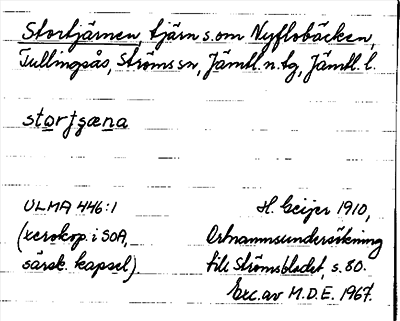 Stortjärnen, tjärn s.om Nyflobäcken,
Tullingsås, Ströms sn, Jämtl. n. tg, Jämtl. l.
stortjæna
ULMA 446:1 H. Geijer 1910,
(xerokop. i SOA, Ortnamnsundersökning
särsk. kapsel). till Strömsbladet, s. 80.
Exc. av M.D.E. 1967.